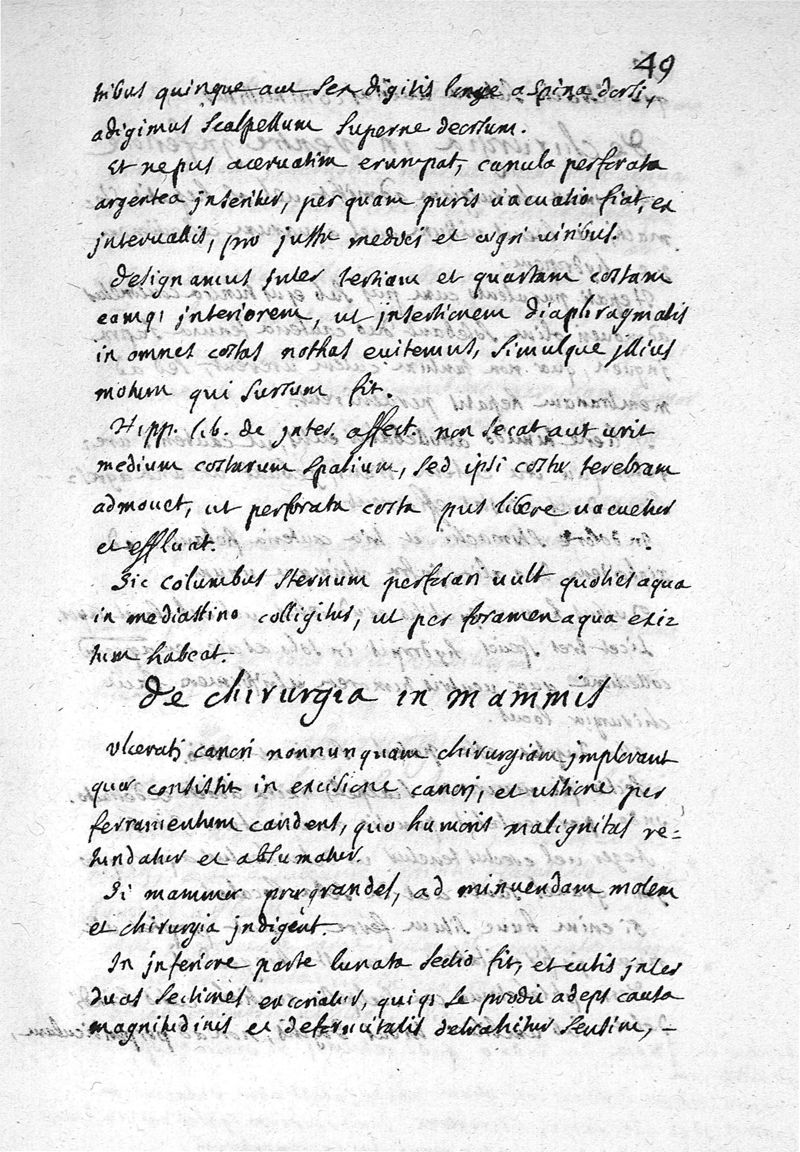 49
tribus quinque aut sex digitis longe a spina dorsi,
adigimus scalpellum superne deorsum.
Et ne pus aceruatim erumpat, canula perforata
argentea jnseritur, per quam puris uacuatio fiat, ex
jnteruallis, pro jussu medici et ægri uiribus.
designamus jnter tertiam et quartam costam
eamq; jnteriorem, ut jnsertionem diaphragmatis
in omnes costas nothas euitemus, simulque jllius
motum qui sursum fit.
Hipp. lib. de jnter. affect. non secat aut urit
medium costarum spatium, sed ipsi costæ terebram
admouet, ut perforata costa pus libere uacuetur
et effluat.
Sic columbus sternum perforari uult quoties aqua
in mediastino colligitur, ut per foramen aqua exi=
tum habeat.
de chirurgia in mammis
vlcerati cancri nonnunquam chirurgiam jmplorant
quæ consistit in excisione cancri, et ustione per
ferramentum candens, quo humoris malignitas re=
tundatur et absumatur.
Si mammæ prægrandes, ad minuendam molem
et chirurgia jndigent.
In jnferiore parte lunata sectio fit, et cutis jnter
duas sectiones excoriatur, quiq; se prodit adeps causa
magnitudinis et deformitatis detrahitur sensim, -